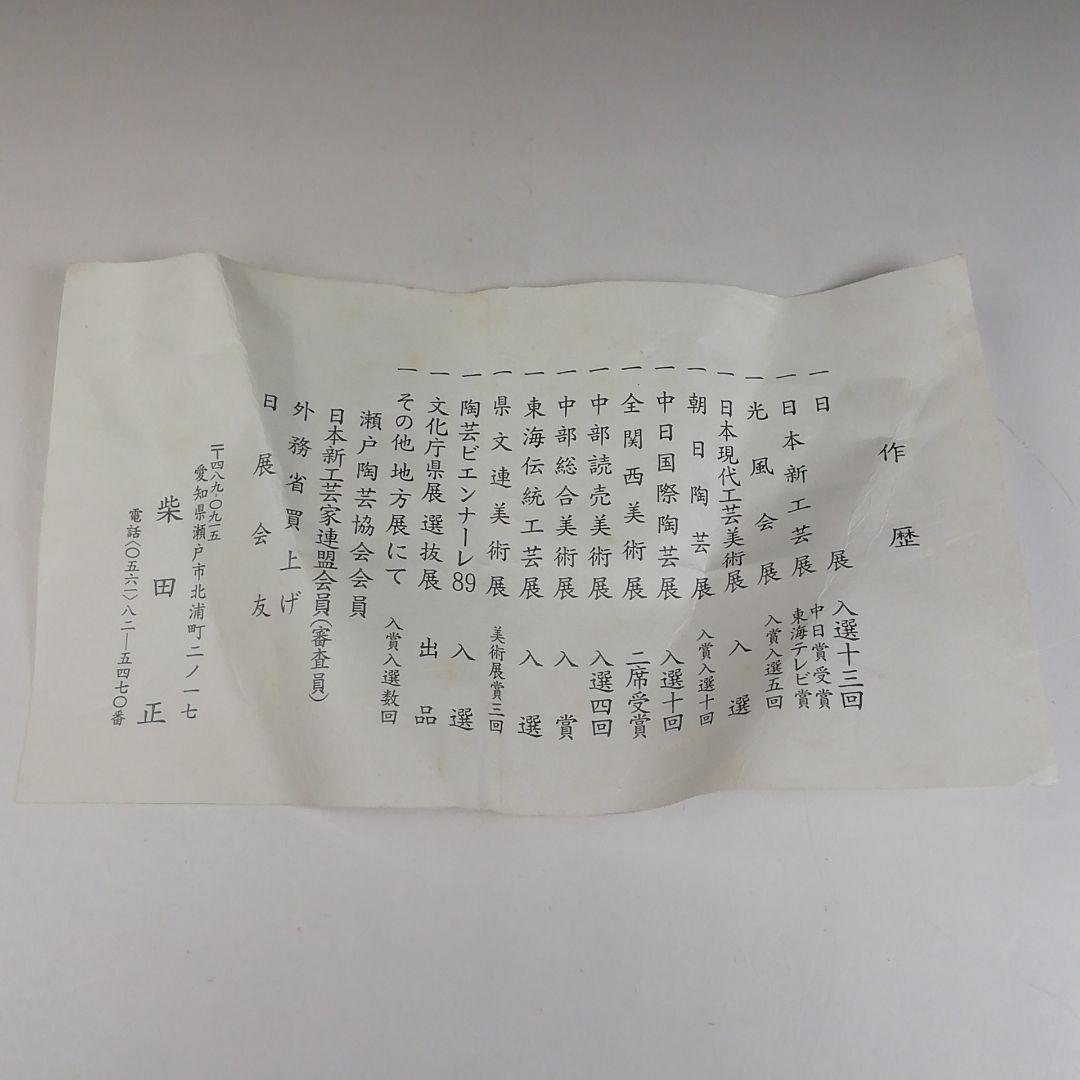 作歴
一日展 入選十三回
一日本新工芸展 中日賞受賞
東海テレビ賞
一光風会展 入賞入選五回
一日本現代工芸美術展 入選
一朝日陶芸展 入賞入選十回
一中日国際陶芸展 入選十回
一全関西美術展 二席受賞
一中部読売美術展 入選四回
一中部総合美術展 入賞
一東海伝統工芸展 入選
一県文連美術展 美術展賞三回
一陶芸ビエンナーレ89 入選
一文化庁県展選抜展 出品
一その他地方展にて 入賞入選数回
瀬戸陶芸協会会員
日本新工芸家連盟会員(審査員)
外務省買上げ
日展会友
〒四八九-〇九一五
愛知県瀬戸市北浦町二ノ一七
柴田正
電話(〇五六一)八二―五四七〇番